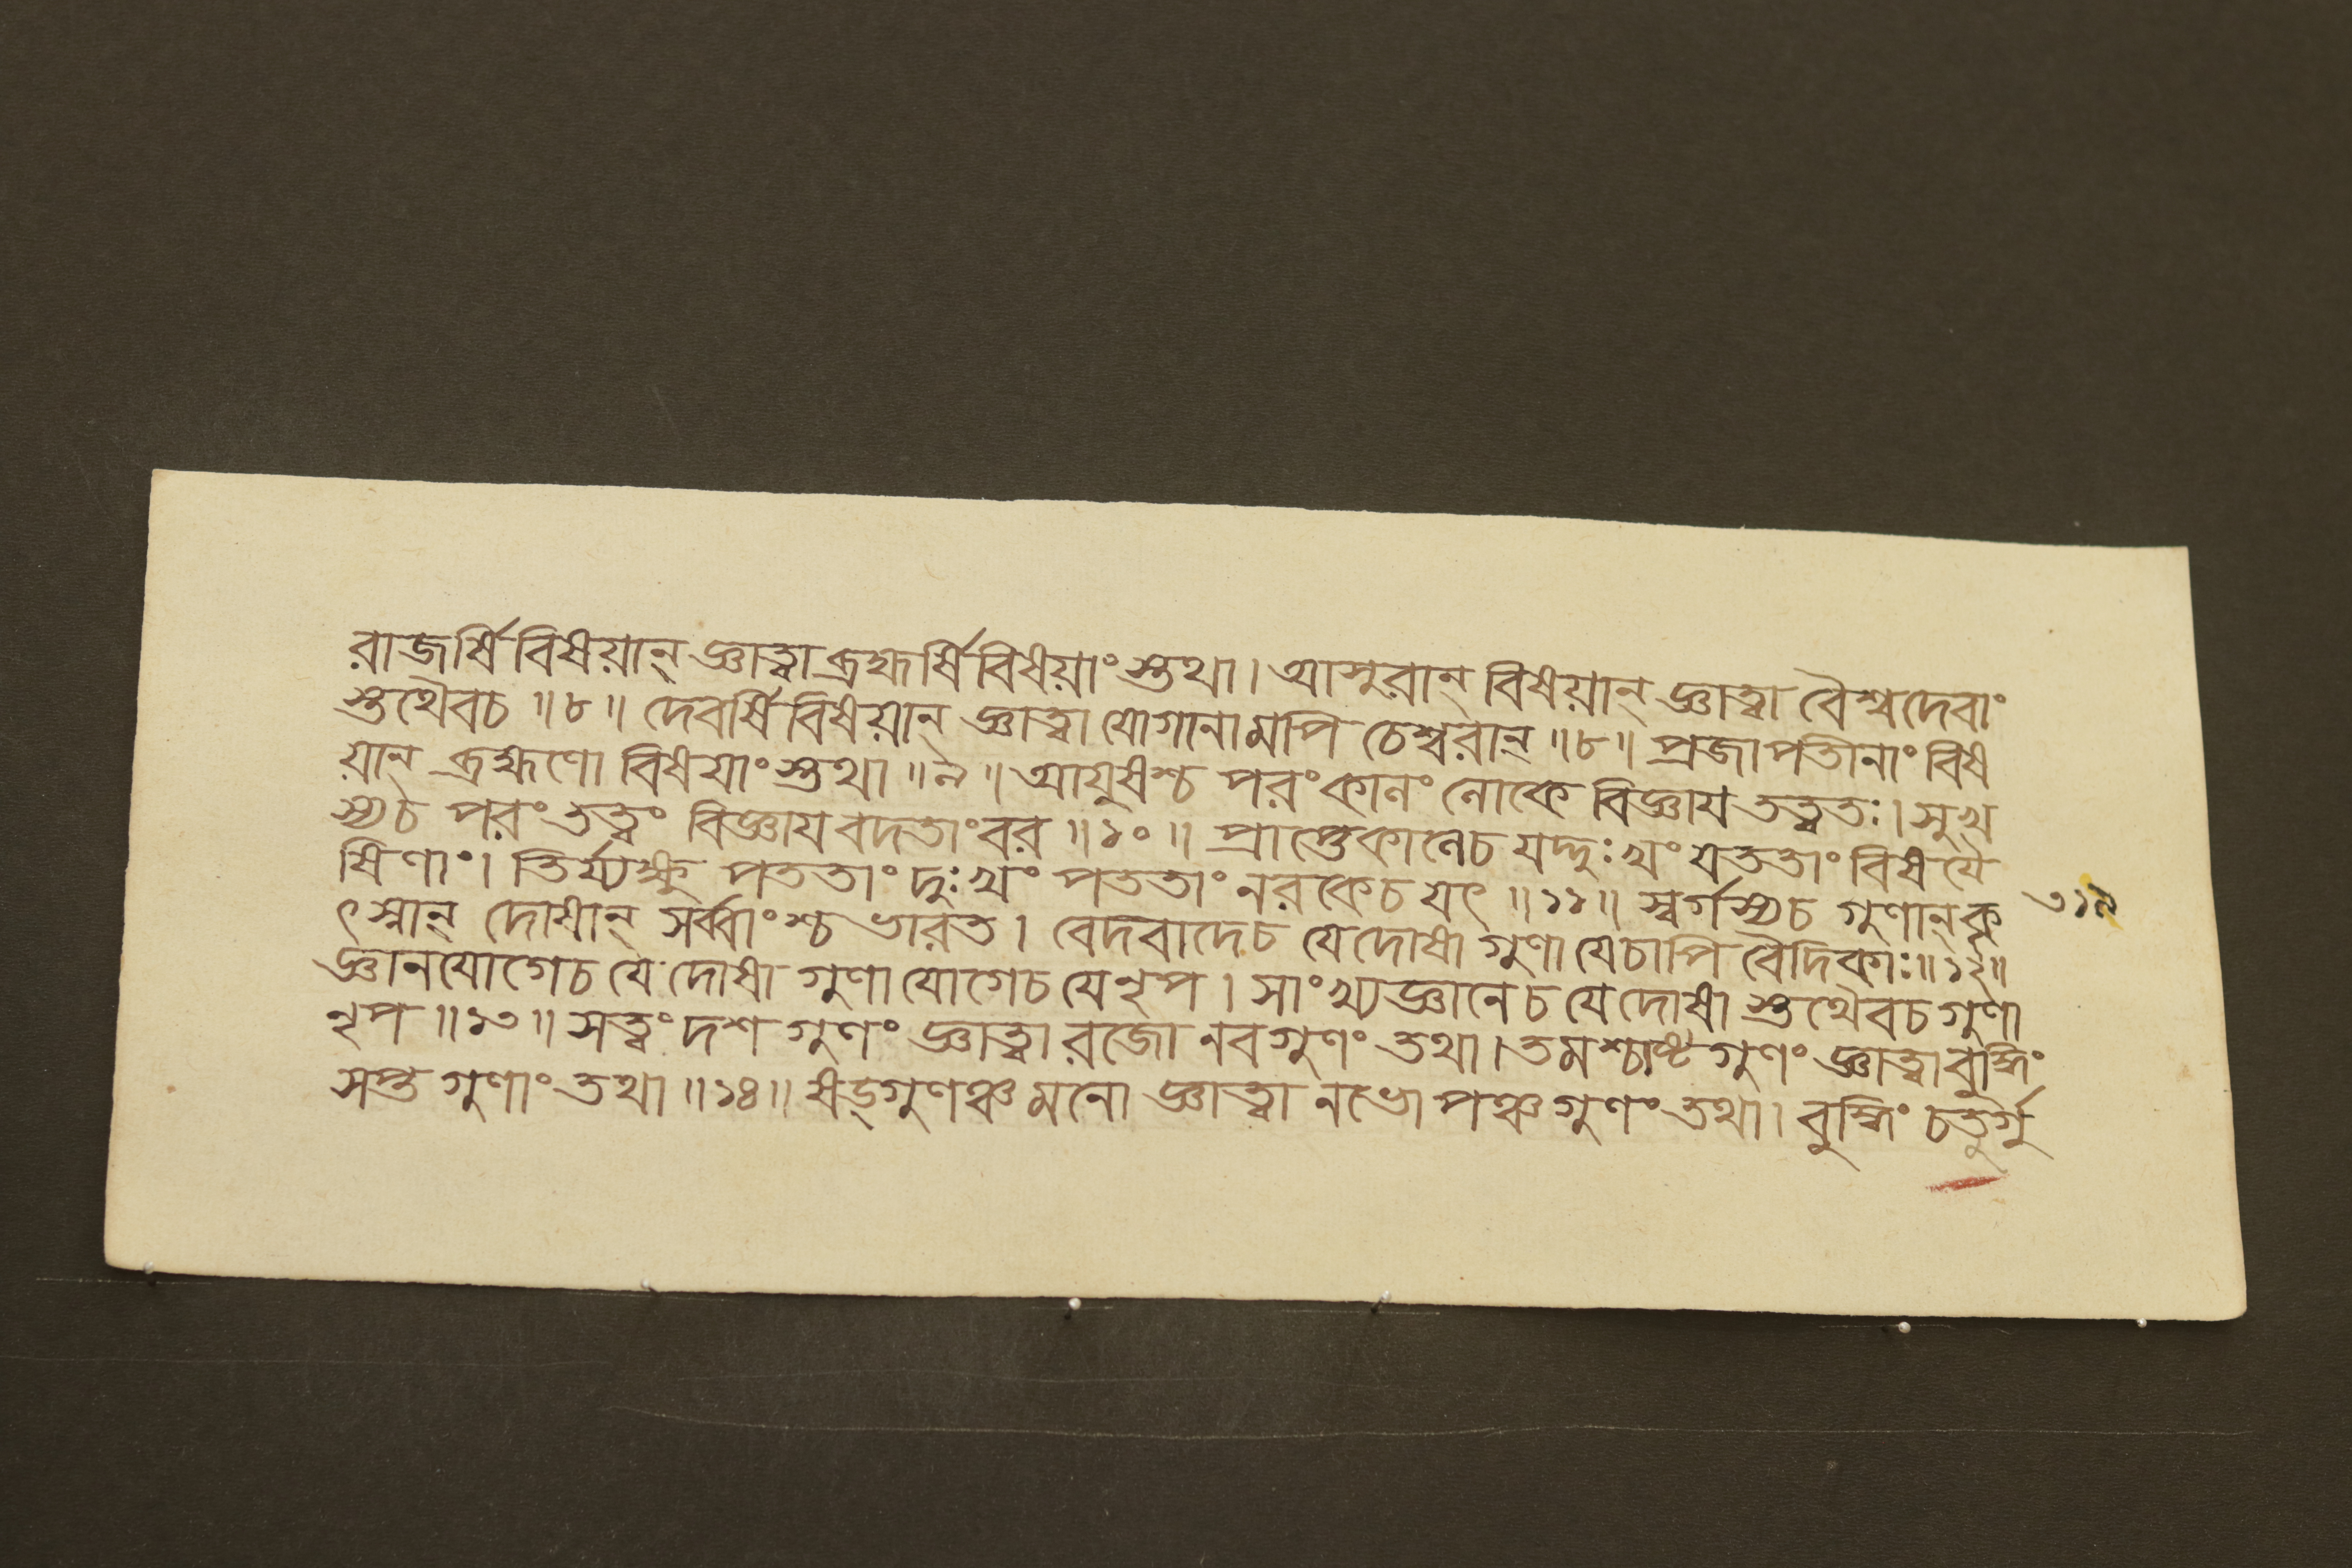 রাজর্ষি বিষয়ান্ জ্ঞাত্বা ব্রহ্মর্ষি বিষয়াং স্তথা। আসুরান্ বিষয়ান্ জ্ঞাত্বা বৈশ্বদেবাং
স্তথৈবচ ॥৮॥ দেবর্ষি বিষয়ান্ জ্ঞাত্বা যোগানামপি চেশ্বরান্ ॥৮॥ প্রজাপতীনাং বিষ
য়ান্ ব্রহ্মণো বিষয়াং স্তথা ॥৯॥ আয়ুষশ্চ পরং কালং লোকে বিজ্ঞায তত্ত্বতঃ। সুখ
স্যচ পরং তত্ত্বং বিজ্ঞায বদতাং বর ॥১০॥ প্রাপ্তেকালেচ যদ্দুঃখং যততাং বিষযৈ
ষিণাং। তির্য্যক্ষু পততাং দুঃখং পততাং নরকেচ যৎ ॥১১॥ স্বর্গস্যচ গুণান্ কৃ ৩১৯
ৎস্নান্ দোষান্ সর্ব্বাংশ্চ ভারত। বেদবাদেচ যে দোষা গুণা যেচাপি বৈদিকাঃ॥১২॥
জ্ঞানযোগেচ যে দোষা গুণা যোগেচ যে নৃপ। সাংখ্যজ্ঞানেচ যে দোষা স্তথৈবচ গুণা
নৃপ ॥১৩॥ সত্ত্বং দশ গুণং জ্ঞাত্বা রজো নবগুণং তথা। তমশ্চাষ্টগুণং জ্ঞাত্বা বুদ্ধিং
সপ্ত গুণাং তথা ॥১৪॥ ষড্গুণঞ্চ মনো জ্ঞাত্বা নভো পঞ্চগুণং তথা। বুদ্ধিং চতুর্গু